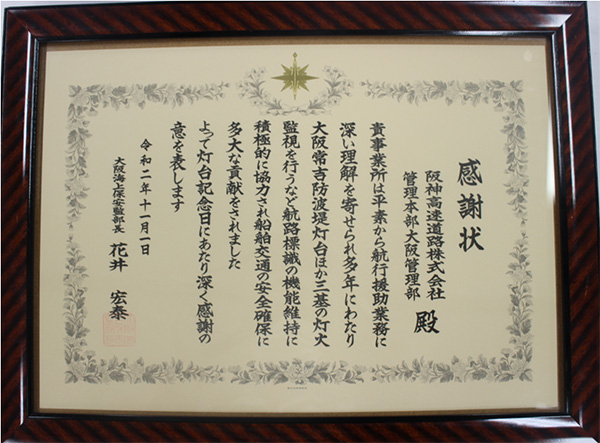 感謝状
阪神高速道路株式会社
管理本部大阪管理部 殿
貴事業所は平素から航行援助業務に
深い理解を寄せられ多年にわたり
大阪常吉防波堤灯台ほか三基の灯火
監視を行うなど航路標識の機能維持に
積極的に協力され船舶交通の安全確保に
多大な貢献をされました
よって灯台記念日にあたり深く感謝の
意を表します
令和二年十一月一日
大阪海上保安監部長 花井 宏泰